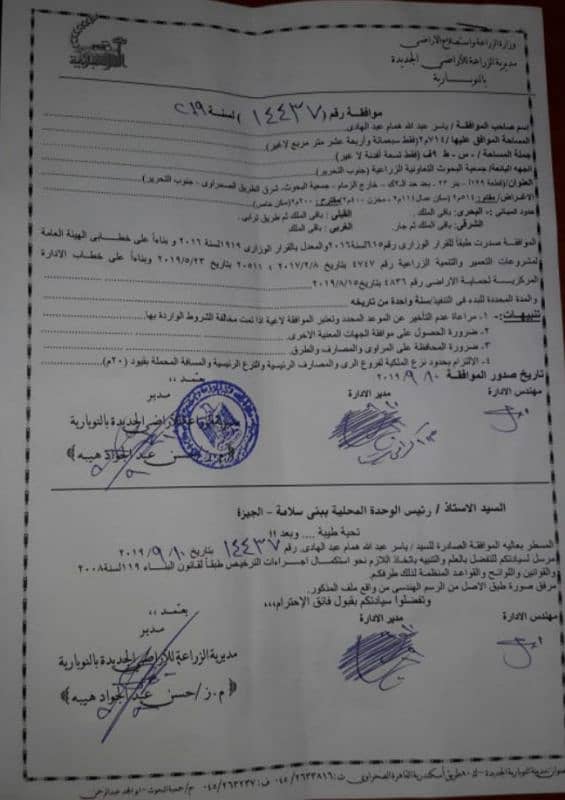 وزارة الزراعة واستصلاح الأراضى
مديرية الزراعة للأراضى الجديدة
بالنوبارية
موافقة رقم (١٤٤٣٧) لسنة ٢٠١٩
إسم صاحب الموافقة / ياسر عبد الله همام عبد الهادى
المساحة الموافق عليها / ٧١٤م٢ (فقط سبعمائة وأربعة عشر متر مربع لاغير)
جملة المساحة / - س - ط ٩ف (فقط تسعة أفدنة لا غير)
الجهه البائعة / جمعية البحوث التعاونية الزراعية (جنوب التحرير)
العنوان / (قطعة ١٢٩ - بئر ٢٣ - بعد حد الـ٢ك - خارج الزمام - جمعية البحوث - شرق الطريق الصحراوى - جنوب التحرير)
الاغراض / مطور ٥١٤م٢ (سكن عمال ١١٤م٢ - مخزن ٤٠٠م٢) مقترح : ٢٠٠م٢ (سكن خاص)
حدود المبانى :- البحرى : باقى الملك . القبلى : باقى الملك ثم طريق ترابى .
الشرقى : باقى الملك ثم جار الغربى : باقى الملك .
الموافقة صدرت طبقاً للقرار الوزارى رقم ٦١٥ لسنة ٢٠١٦ والمعدل بالقرار الوزارى ١٩١٩ لسنة ٢٠١٦ و بناءاً على خطابى الهيئة العامة
لمشروعات التعمير والتنمية الزراعية رقم ٤٧٤٧ بتاريخ ٢٠١٧/٢/٨ ، ٢٠٥١١ بتاريخ ٢٠١٩/٥/٢٣ وبناءاً على خطاب الادارة
المركزيـة لحمايـة الاراضى رقم ٤٨٣٦ بتاريخ ٢٠١٩/٨/١٥
والمدة المحددة للبدء فى التنفيذ / سنة واحدة من تاريخه
تنبيهات :- ١- مراعاة عدم التأخير عن الموعد المحدد وتعتبر الموافقة لاغية اذا تمت مخالفة الشروط الواردة بها.
٢- ضرورة الحصول على موافقة الجهات المعنية الاخرى.
٣- ضرورة المحافظة على المراوى والمصارف والطرق.
٤- الالتزام بحدود نزع الملكية لفروع الرى والمصارف الرئيسية والترع الرئيسية والمسافة المحملة بقيود (٢٠م)
تاريخ صدور الموافقة ١٠ / ٩ / ٢٠١٩
يعتمد ،،
مهندس الادارة مدير الادارة مدير
مديرية الزراعة للأراضى الجديدة بالنوبارية
(م.ز/حسن عبد الجواد هيبه)
السيد الاستاذ / رئيس الوحدة المحلية ببنى سلامة - الجيزة
تحية طيبة .... و بعد !!
المسطر بعاليه الموافقة الصادرة للسيد / ياسر عبد الله همام عبد الهادى. رقم ١٤٤٣٧ بتاريخ ١٠ / ٩ / ٢٠١٩
مرسل لسيادتكم للتفضل بالعلم والتنبيه باتخاذ اللازم نحو استكمال اجراءات الترخيص طبقاً لقانون البناء ١١٩ لسنة ٢٠٠٨
والقوانين واللوائح والقواعد المنظمة لذلك طرفكم.
مرفق صورة طبق الاصل من الرسم الهندسى من واقع ملف المذكور.
وتفضلوا سيادتكم بقبول فائق الإحترام،،،
يعتمد ،،
مهندس الادارة مدير الادارة مدير
مديرية الزراعة للأراضى الجديدة بالنوبارية
(م.ز/حسن عبد الجواد هيبه)